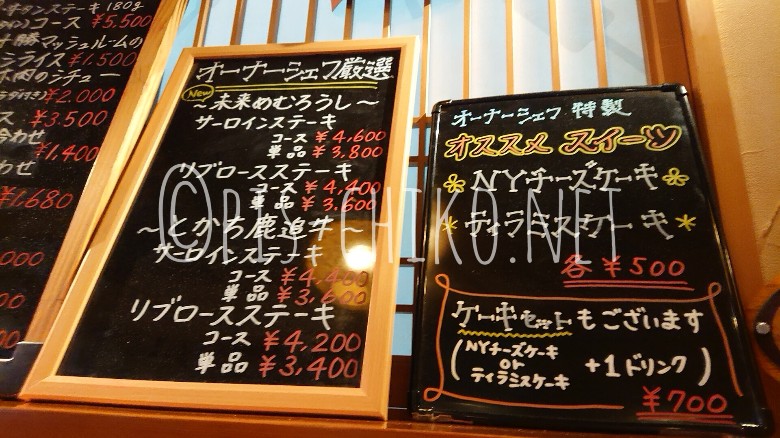 タンステーキ 180g
コース ¥5,500
十勝マッシュルームの
ライス ¥1,500
¥2,000
¥3,500
合わせ
¥1,400
わせ
¥1,680
オーナーシェフ厳選
New
～未来めむろうし～
サーロインステーキ
コース ¥4,600
単品 ¥3,800
リブロースステーキ
コース ¥4,400
単品 ¥3,600
～とかち鹿追牛～
サーロインステーキ
コース ¥4,400
単品 ¥3,600
リブロースステーキ
コース ¥4,200
単品 ¥3,400
オーナーシェフ 特製
オススメ スイーツ
NYチーズケーキ
ティラミスケーキ
各 ¥500
ケーキセットもございます
(NYチーズケーキ
or
ティラミスケーキ
+1ドリンク)
¥700